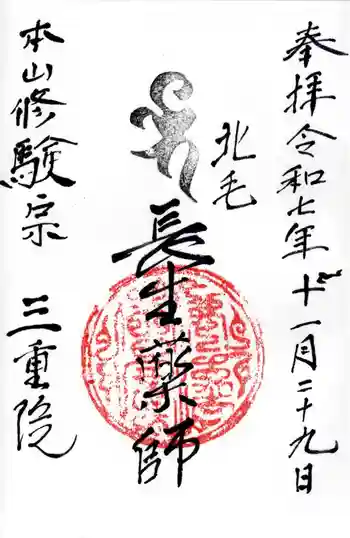 奉拝令和七年十一月二十九日
北毛
長生薬師
本山修験宗
三重院